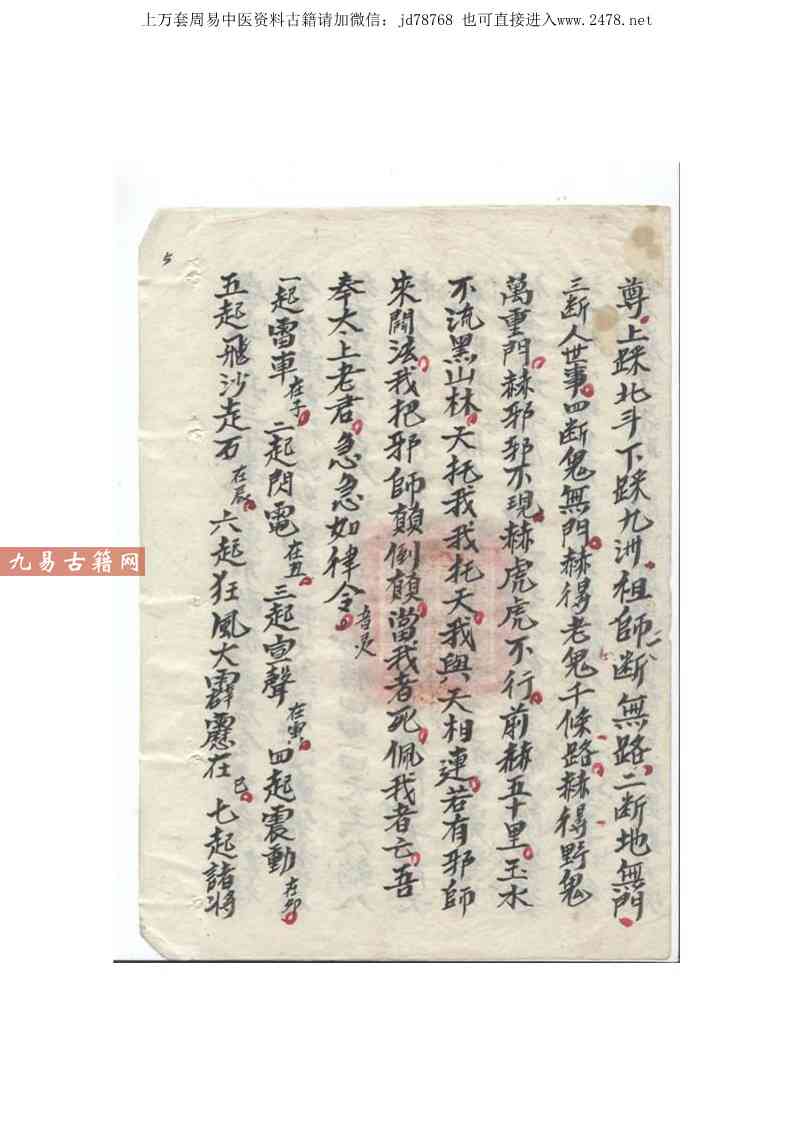 上万套周易中医资料古籍请加微信：jd78768 也可直接进入www.2478.net
尊上踩北斗下踩九洲祖師一断無路二断地無門
三断人世事四断鬼無門赫得老鬼千條路赫得野鬼
萬重門赫邪邪不現赫虎虎不行前赫五十里玉水
不流黑山林天托我我托天我與天相連若有邪師
來鬪法我把邪師顛倒顛當我者死佩我者亡吾
奉太上老君急急如律令
一起雷車在子二起閃電在丑三起宣聲在寅四起震動在卯
五起飛沙走石在辰六起狂風大霹靂在巳七起諸将
5
九易古籍网